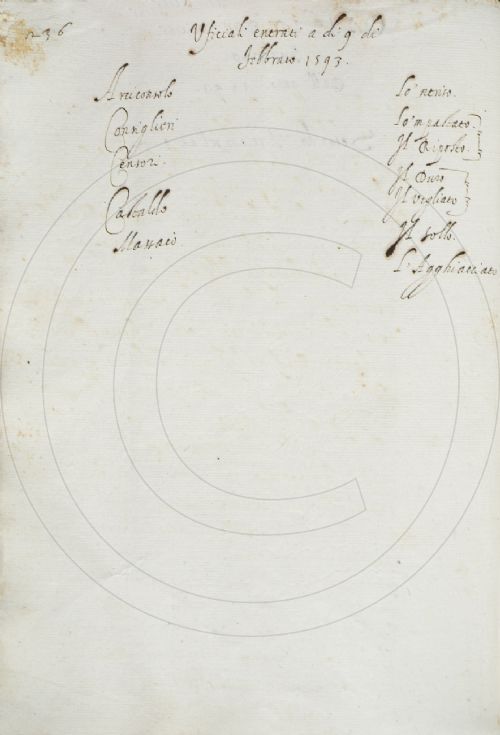 236
Uficiali entrati a dì 9 di
febbraio 1593.
Arciconsolo Lo 'nferigno.
Consiglieri Lo 'mpastato.
Il Riposto.
Censori. Il Duro
Il Vagliato
Castaldo Il Sollo.
Massaio L'Agghiacciato